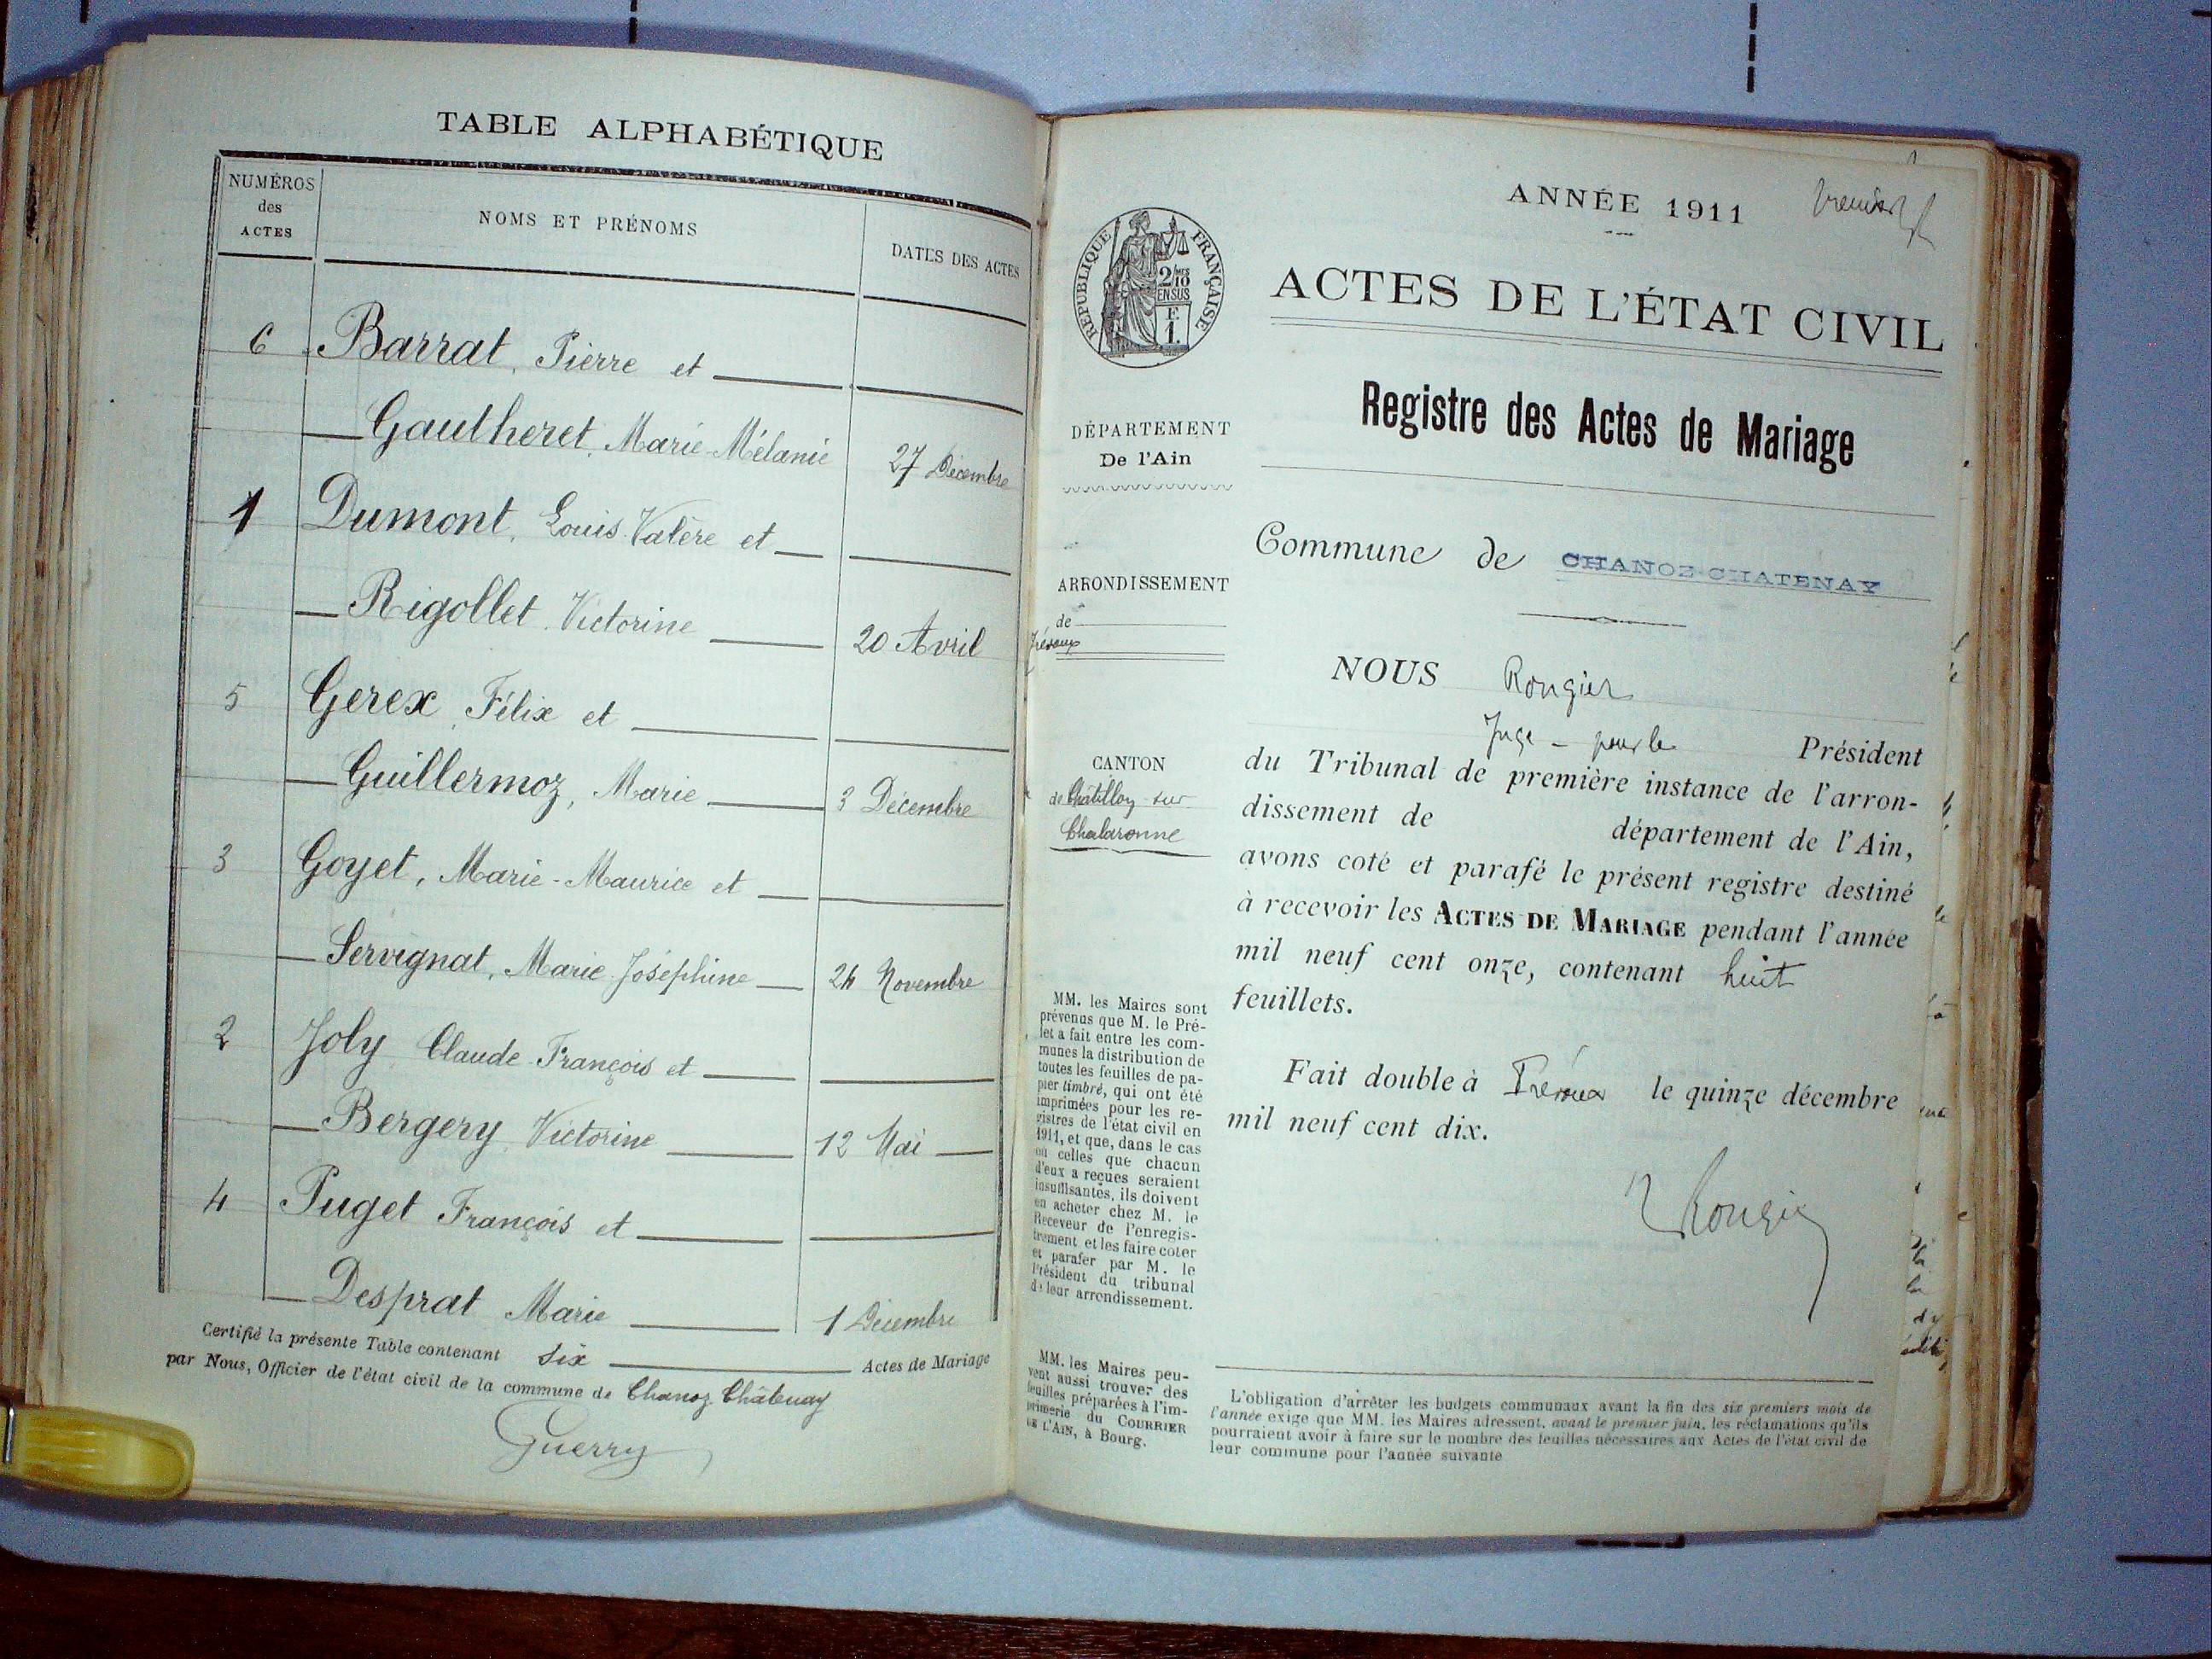 TABLE ALPHABÉTIQUE
NUMÉROS
des
ACTES
NOMS ET PRÉNOMS
DATES DES ACTES
6 Barrat, Pierre et
Gautheret, Marie-Mélanie 27 Décembre
1 Dumont, Louis Valère et
Rigollet Victorine 20 Avril
5 Gerex, Félix et
Guillermoz, Marie 3 Décembre
3 Goyet, Marie-Maurice et
Servignat, Marie Joséphine 24 Novembre
2 Joly Claude François et
Bergery Victorine 12 Mai
4 Puget François et
Desprat Marie 1 Décembre
Certifié la présente Table contenant six Actes de Mariage
par Nous, Officier de l'état civil de la commune de Chanoz Châtenay
Guerry
ANNÉE 1911
RÉPUBLIQUE FRANÇAISE
2/10
EN SUS
F.
1.
ACTES DE L'ÉTAT CIVIL
Registre des Actes de Mariage
DÉPARTEMENT
De l'Ain
Commune de CHANOZ-CHATENAY
ARRONDISSEMENT
de
Trévoux
CANTON
de Châtillon-sur-
Chalaronne
NOUS Rougier
Juge - pour le Président
du Tribunal de première instance de l'arron-
dissement de département de l'Ain,
avons coté et parafé le présent registre destiné
à recevoir les ACTES DE MARIAGE pendant l'année
mil neuf cent onze, contenant huit
feuillets.
Fait double à Trévoux le quinze décembre
mil neuf cent dix.
Rougier
MM. les Maires sont
prévenus que M. le Pré-
fet a fait entre les com-
munes la distribution de
toutes les feuilles de pa-
pier timbré, qui ont été
imprimées pour les re-
gistres de l'état civil en
1911, et que, dans le cas
où celles que chacun
d'eux a reçues seraient
insuffisantes, ils doivent
en acheter chez M. le
Receveur de l'enregis-
trement et les faire coter
et parafer par M. le
Président du tribunal
de leur arrondissement.
MM. les Maires peu-
vent aussi trouver des
feuilles préparées à l'im-
primerie du COURRIER
DE L'AIN, à Bourg.
L'obligation d'arrêter les budgets communaux avant la fin des six premiers mois de
l'année exige que MM. les Maires adressent, avant le premier juin, les réclamations qu'ils
pourraient avoir à faire sur le nombre des feuilles nécessaires aux Actes de l'état civil de
leur commune pour l'année suivante